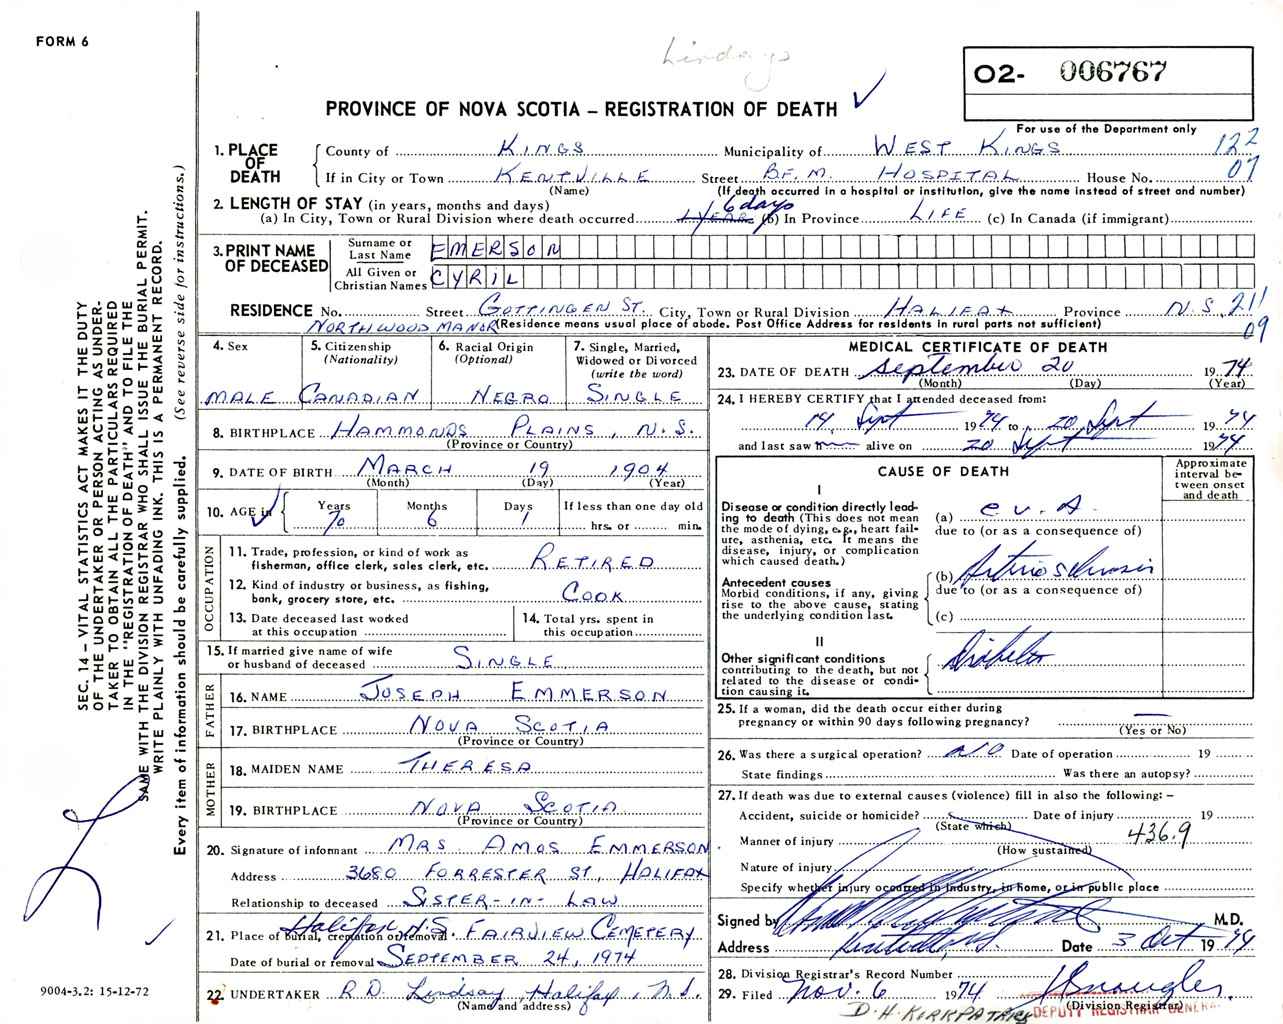 FORM 6
Lindsays
O2- 006767
PROVINCE OF NOVA SCOTIA – REGISTRATION OF DEATH
For use of the Department only
1. PLACE OF DEATH
County of KINGS Municipality of WEST KINGS 122
If in City or Town KENTVILLE Street B.F.M. HOSPITAL House No. 07
(Name) (If death occurred in a hospital or institution, give the name instead of street and number)
2. LENGTH OF STAY (in years, months and days) 6 days
(a) In City, Town or Rural Division where death occurred 1 YEAR (b) In Province LIFE (c) In Canada (if immigrant)
3. PRINT NAME OF DECEASED
Surname or Last Name EMERSON
All Given or Christian Names CYRIL
RESIDENCE No. Street GOTTINGEN ST. City, Town or Rural Division HALIFAX Province N.S. 211
NORTHWOOD MANOR (Residence means usual place of abode. Post Office Address for residents in rural parts not sufficient) 09
4. Sex
MALE
5. Citizenship
(Nationality)
CANADIAN
6. Racial Origin
(Optional)
NEGRO
7. Single, Married,
Widowed or Divorced
(write the word)
SINGLE
8. BIRTHPLACE HAMMONDS PLAINS, N.S.
(Province or Country)
9. DATE OF BIRTH MARCH 19 1904
(Month) (Day) (Year)
10. AGE in
Years Months Days If less than one day old
70 6 1 hrs. or min.
OCCUPATION
11. Trade, profession, or kind of work as
fisherman, office clerk, sales clerk, etc. RETIRED
12. Kind of industry or business, as fishing,
bank, grocery store, etc. COOK
13. Date deceased last worked
at this occupation
14. Total yrs. spent in
this occupation
15. If married give name of wife
or husband of deceased SINGLE
FATHER
16. NAME JOSEPH EMMERSON
17. BIRTHPLACE NOVA SCOTIA
(Province or Country)
MOTHER
18. MAIDEN NAME THERESA
19. BIRTHPLACE NOVA SCOTIA
(Province or Country)
20. Signature of informant MRS AMOS EMMERSON.
Address 3680 FORRESTER ST, HALIFAX
Relationship to deceased SISTER-IN-LAW
21. Place of burial, cremation or removal Halifax, N.S. FAIRVIEW CEMETERY
Date of burial or removal SEPTEMBER 24, 1974
22. UNDERTAKER R.D. Lindsay, Halifax, N.S.
(Name and address)
MEDICAL CERTIFICATE OF DEATH
23. DATE OF DEATH September 20 1974
(Month) (Day) (Year)
24. I HEREBY CERTIFY that I attended deceased from:
14, Sept 1974 to 20, Sept 1974
and last saw alive on 20 Sept 1974
CAUSE OF DEATH
Approximate
interval be-
tween onset
and death
I
Disease or condition directly lead-
ing to death (This does not mean
the mode of dying, e.g., heart fail-
ure, asthenia, etc. It means the
disease, injury, or complication
which caused death.)
(a) c v. A.
due to (or as a consequence of)
Antecedent causes
Morbid conditions, if any, giving
rise to the above cause, stating
the underlying condition last.
(b)
due to (or as a consequence of)
(c)
II
Other significant conditions
contributing to the death, but not
related to the disease or condi-
tion causing it.
Diabetes
25. If a woman, did the death occur either during
pregnancy or within 90 days following pregnancy? —
(Yes or No)
26. Was there a surgical operation? NO Date of operation 19
State findings Was there an autopsy?
27. If death was due to external causes (violence) fill in also the following: –
Accident, suicide or homicide? Date of injury 19
(State which)
Manner of injury 436.9
(How sustained)
Nature of injury
Specify whether injury occurred in industry, in home, or in public place
Signed by M.D.
Address Date 3 Oct 1974
28. Division Registrar's Record Number
29. Filed Nov. 6 1974
(Division Registrar)
D.H. KIRKPATRICK DEPUTY REGISTRAR GENERAL
SEC. 14 – VITAL STATISTICS ACT MAKES IT THE DUTY
OF THE UNDERTAKER OR PERSON ACTING AS UNDER-
TAKER TO OBTAIN ALL THE PARTICULARS REQUIRED
IN THE "REGISTRATION OF DEATH" AND TO FILE THE
SAME WITH THE DIVISION REGISTRAR WHO SHALL ISSUE THE BURIAL PERMIT.
WRITE PLAINLY WITH UNFADING INK. THIS IS A PERMANENT RECORD.
Every item of information should be carefully supplied. (See reverse side for instructions.)
9004-3.2: 15-12-72